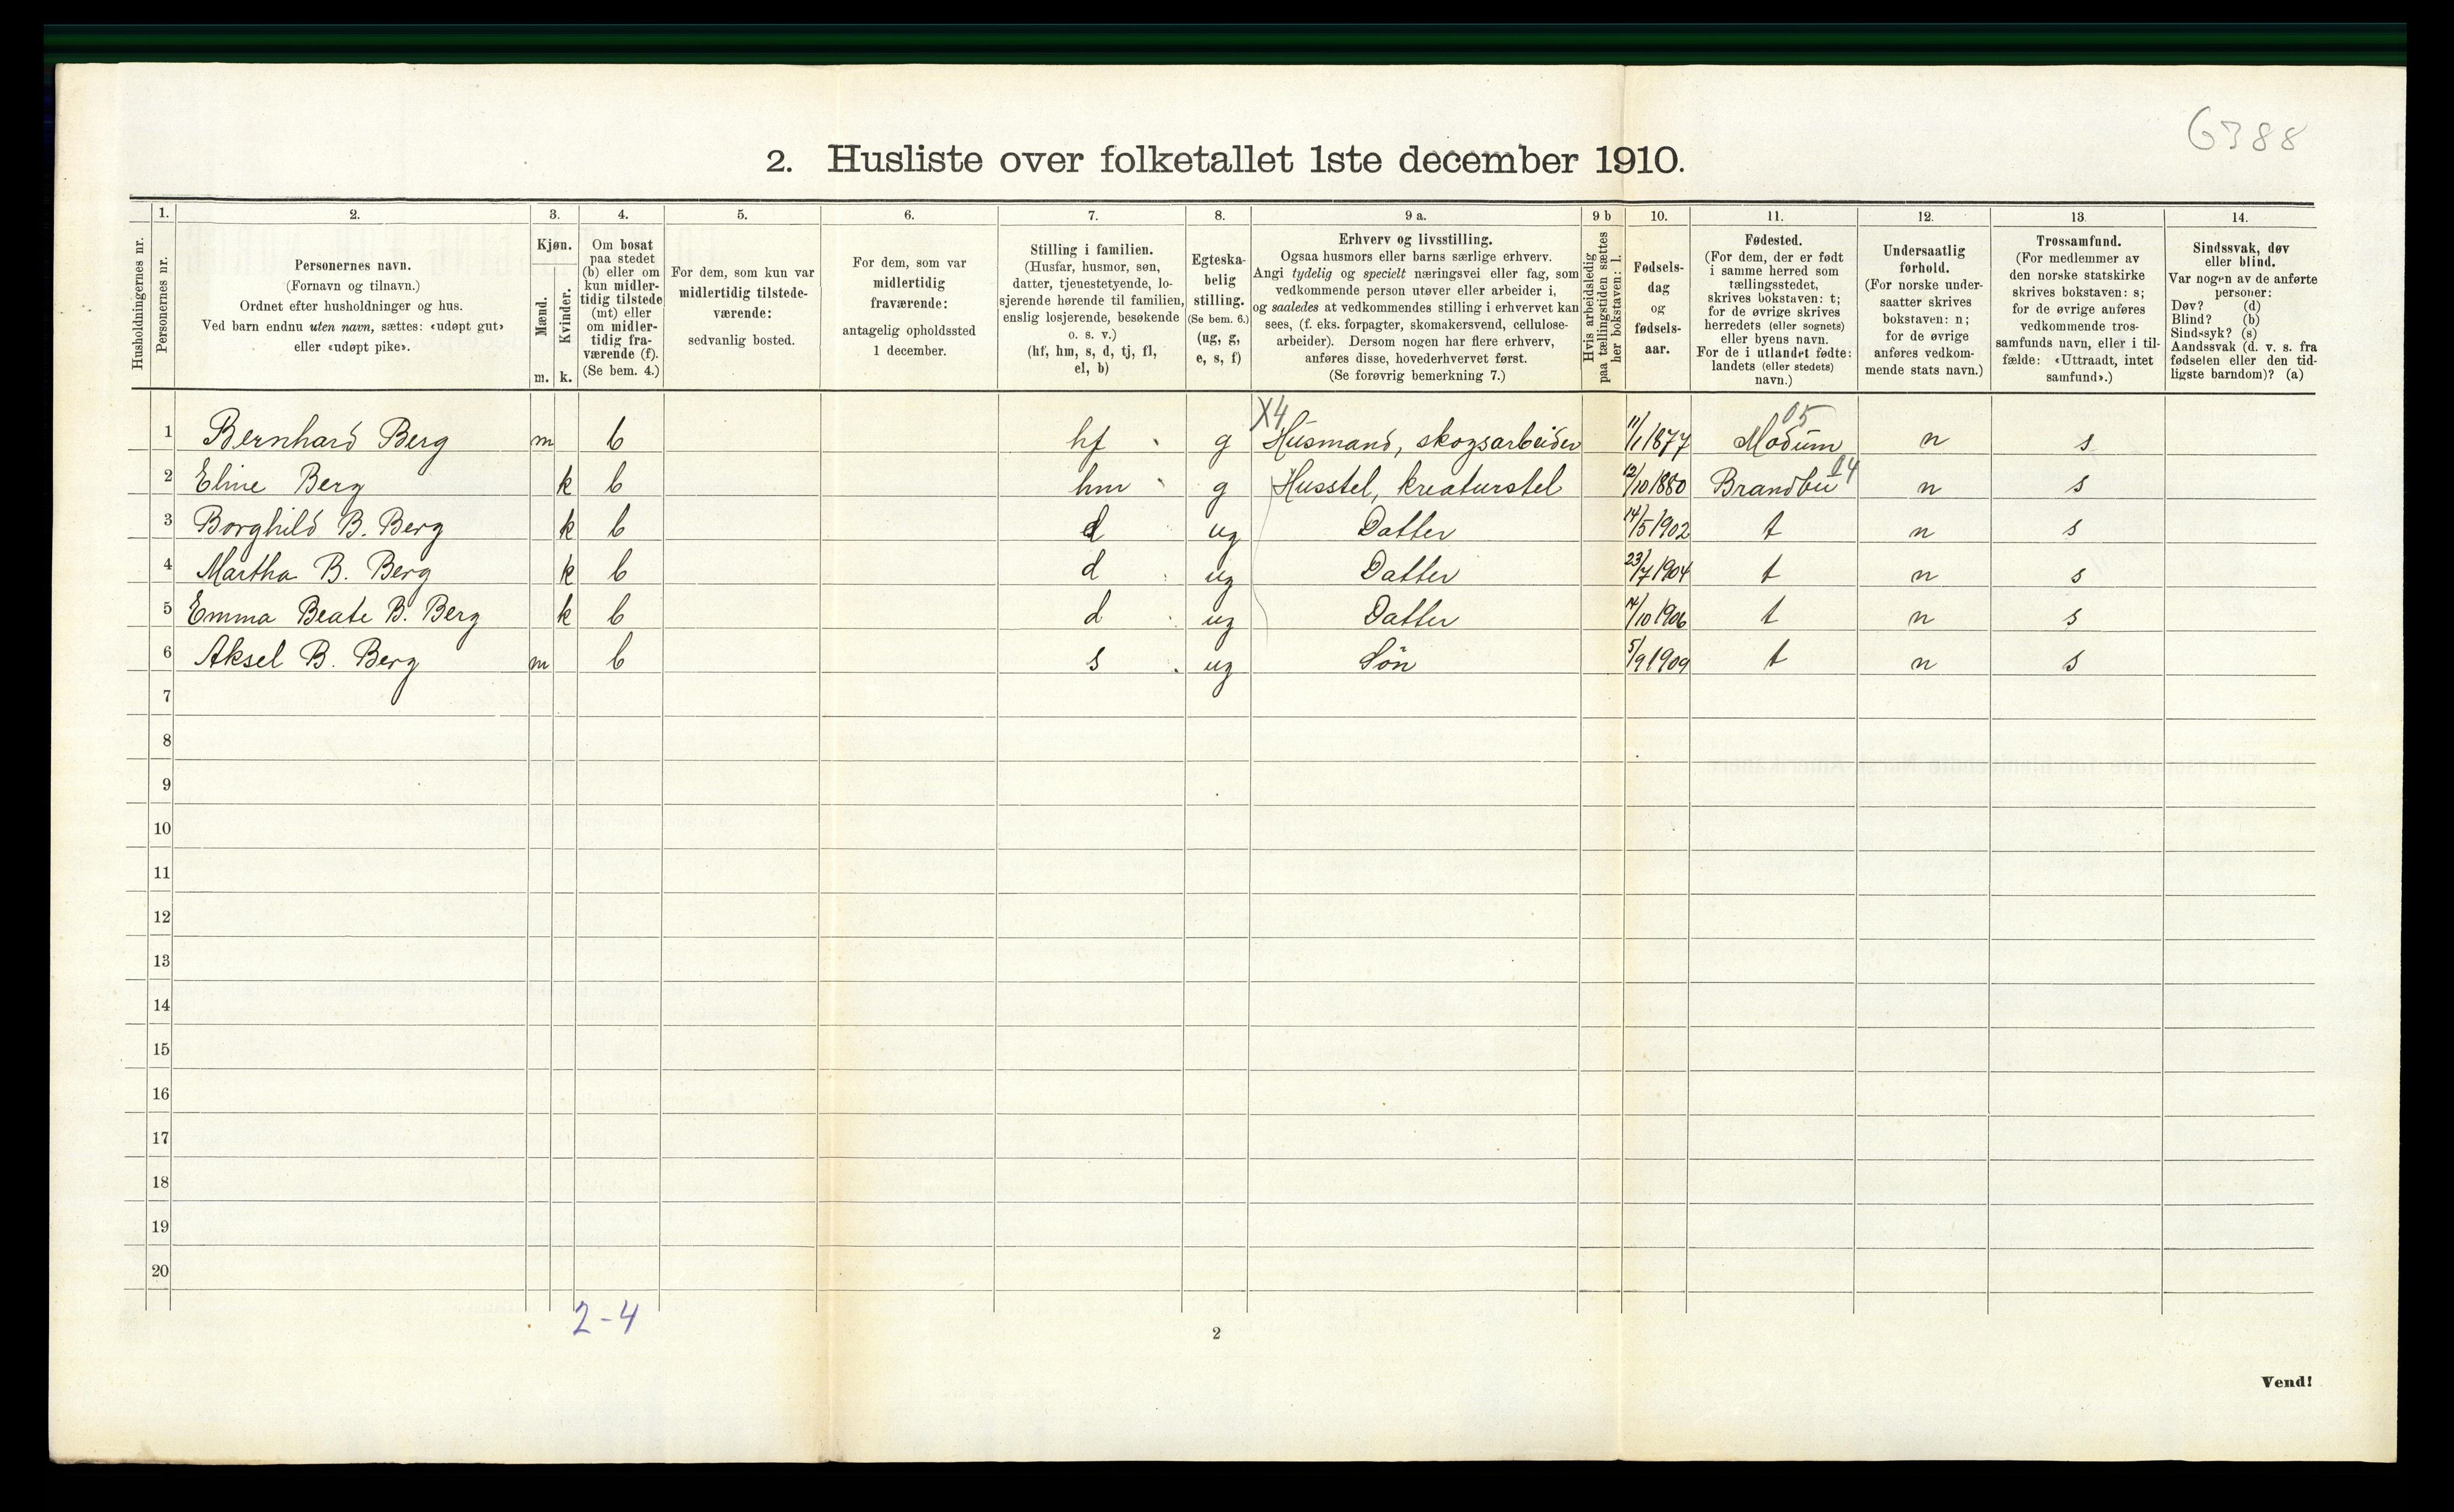 6388
2. Husliste over folketallet 1ste december 1910.
Husholdningernes nr.
1.
Personernes nr.
2.
Personernes navn.
(Fornavn og tilnavn.)
Ordnet efter husholdninger og hus.
Ved barn endnu uten navn, sættes: «udøpt gut»
eller «udøpt pike».
3.
Kjøn.
Mænd.
m.
Kvinder.
k.
4.
Om bosat
paa stedet
(b) eller om
kun midler-
tidig tilstede
(mt) eller
om midler-
tidig fra-
værende (f).
(Se bem. 4.)
5.
For dem, som kun var
midlertidig tilstede-
værende:
sedvanlig bosted.
6.
For dem, som var
midlertidig
fraværende:
antagelig opholdssted
1 december.
7.
Stilling i familien.
(Husfar, husmor, søn,
datter, tjenestetyende, lo-
sjerende hørende til familien,
enslig losjerende, besøkende
o. s. v.)
(hf, hm, s, d, tj, fl,
el, b)
8.
Egteska-
belig
stilling.
(Se bem. 6.)
(ug, g,
e, s, f)
9 a.
Erhverv og livsstilling.
Ogsaa husmors eller barns særlige erhverv.
Angi tydelig og specielt næringsvei eller fag, som
vedkommende person utøver eller arbeider i,
og saaledes at vedkommendes stilling i erhvervet kan
sees, (f. eks. forpagter, skomakersvend, cellulose-
arbeider). Dersom nogen har flere erhverv,
anføres disse, hovederhvervet først.
(Se forøvrig bemerkning 7.)
9 b
Hvis arbeidsledig
paa tællingstiden sættes
her bokstaven: l.
10.
Fødsels-
dag
og
fødsels-
aar.
11.
Fødested.
(For dem, der er født
i samme herred som
tællingsstedet,
skrives bokstaven: t;
for de øvrige skrives
herredets (eller sognets)
eller byens navn.
For de i utlandet fødte:
landets (eller stedets)
navn.)
12.
Undersaatlig
forhold.
(For norske under-
saatter skrives
bokstaven: n;
for de øvrige
anføres vedkom-
mende stats navn.)
13.
Trossamfund.
(For medlemmer av
den norske statskirke
skrives bokstaven: s;
for de øvrige anføres
vedkommende tros-
samfunds navn, eller i til-
fælde: «Uttraadt, intet
samfund».)
14.
Sindssvak, døv
eller blind.
Var nogen av de anførte
personer:
Døv? (d)
Blind? (b)
Sindssyk? (s)
Aandssvak (d. v. s. fra
fødselen eller den tid-
ligste barndom)? (a)
X4 05
1 Bernhard Berg m b hf g Husmand, skogsarbeider 11/1 1877 Modum n s
04
2 Eline Berg k b hm g Husstel, kreaturstel 12/10 1880 Brandbu n s
3 Borghild B. Berg k b d ug Datter 14/5 1902 t n s
4 Martha B. Berg k b d ug Datter 23/7 1904 t n s
5 Emma Beate B. Berg k b d ug Datter 14/10 1906 t n s
6 Aksel B. Berg m b s ug Sön 5/9 1909 t n s
7
8
9
10
11
12
13
14
15
16
17
18
19
20
2-4
2
Vend!